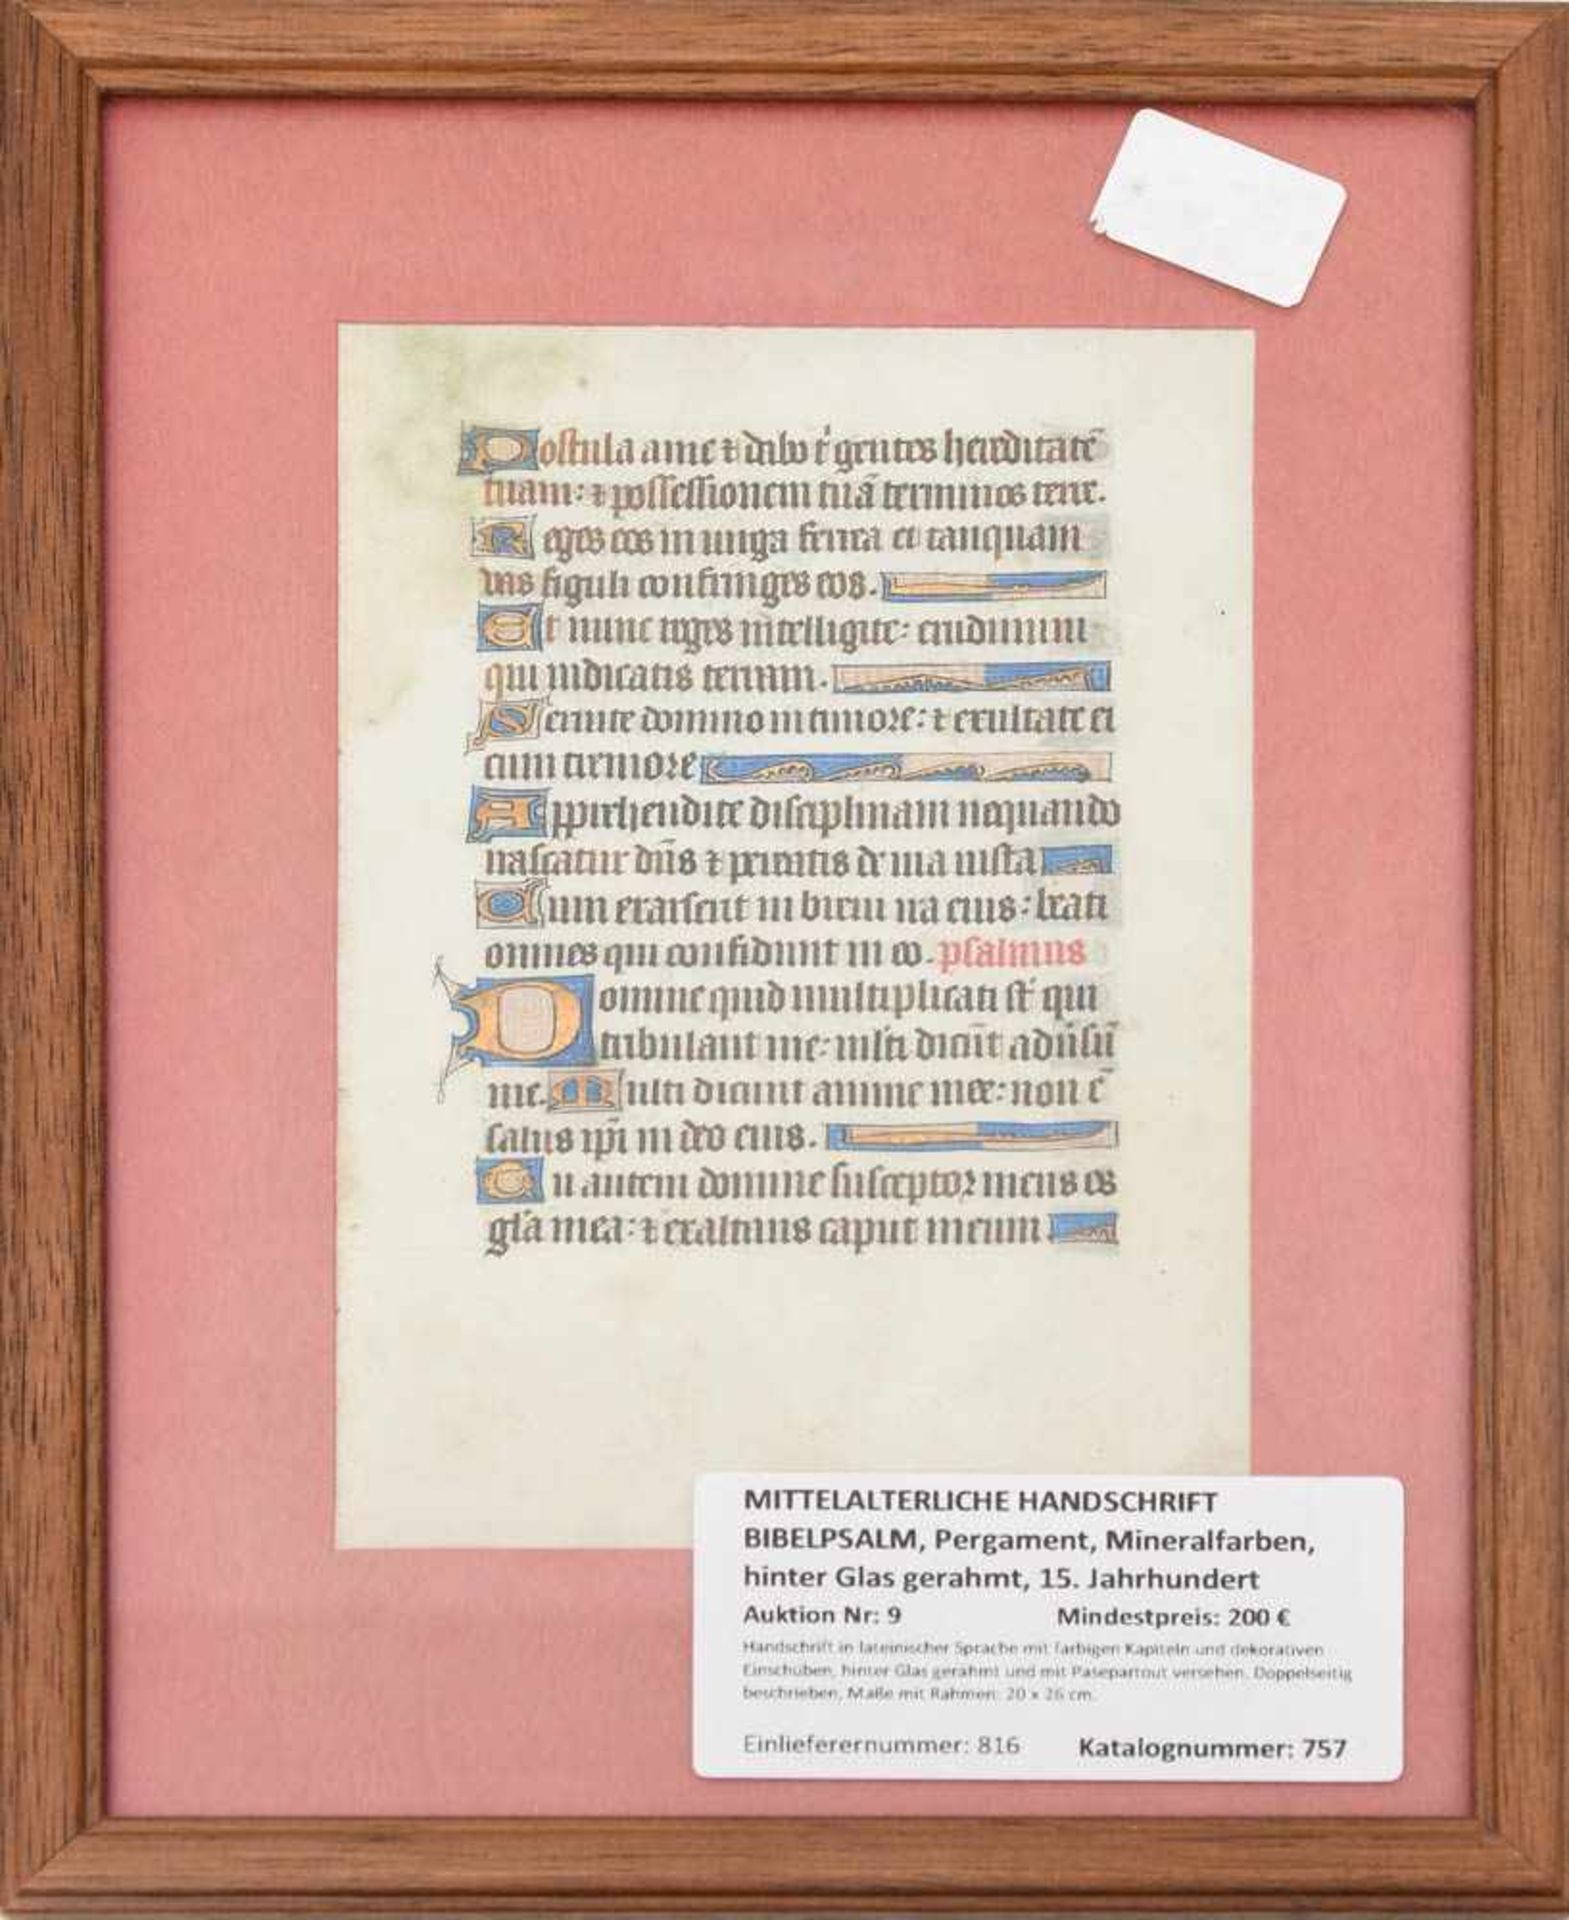 Postula a me ⁊ dabo t' gentes hereditatē
tuam: ⁊ possessionem tuā terminos terre.
Reges eos in uirga ferrea et tanquam
uas figuli confringes eos.
Et nunc reges intelligite: erudimini
qui iudicatis terram.
Seruite domino in timore: ⁊ exultate ei
cum tremore
Apprehendite disciplinam nequando
irascatur dn̄s ⁊ pereatis de uia iusta
Cum exarserit in breui ira eius: beati
omnes qui confidunt in eo. psalmus
Domine quid multiplicati st' qui
tribulant me: mlti dicūt aduīsū
me. Multi dicunt anime mee: non ē
salus ip̄i in deo eius.
Tu autem domine susceptor meus es
gl'a mea: ⁊ exaltans caput meum
MITTELALTERLICHE HANDSCHRIFT
BIBELPSALM, Pergament, Mineralfarben,
hinter Glas gerahmt, 15. Jahrhundert
Auktion Nr: 9 Mindestpreis: 200 €
Handschrift in lateinischer Sprache mit farbigen Kapiteln und dekorativen
Einschüben, hinter Glas gerahmt und mit Pasepartout versehen. Doppelseitig
beschrieben, Maße mit Rahmen: 20 x 26 cm.
Einlieferernummer: 816 Katalognummer: 757